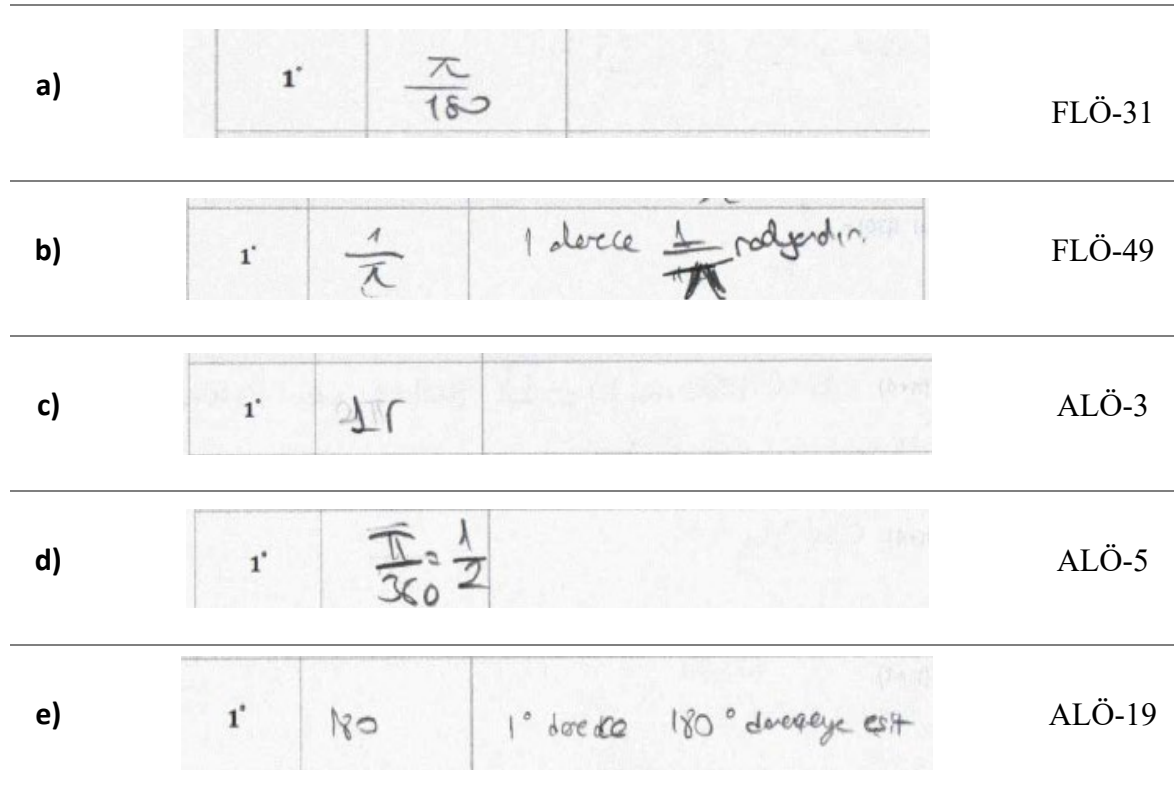 a) 1° π/180 FLÖ-31
b) 1° 1/π 1 derece 1/π radyandır. FLÖ-49
c) 1° ALÖ-3
d) 1° π/360 = 1/2 ALÖ-5
e) 1° 180 1° derece 180° dereceye eşit ALÖ-19